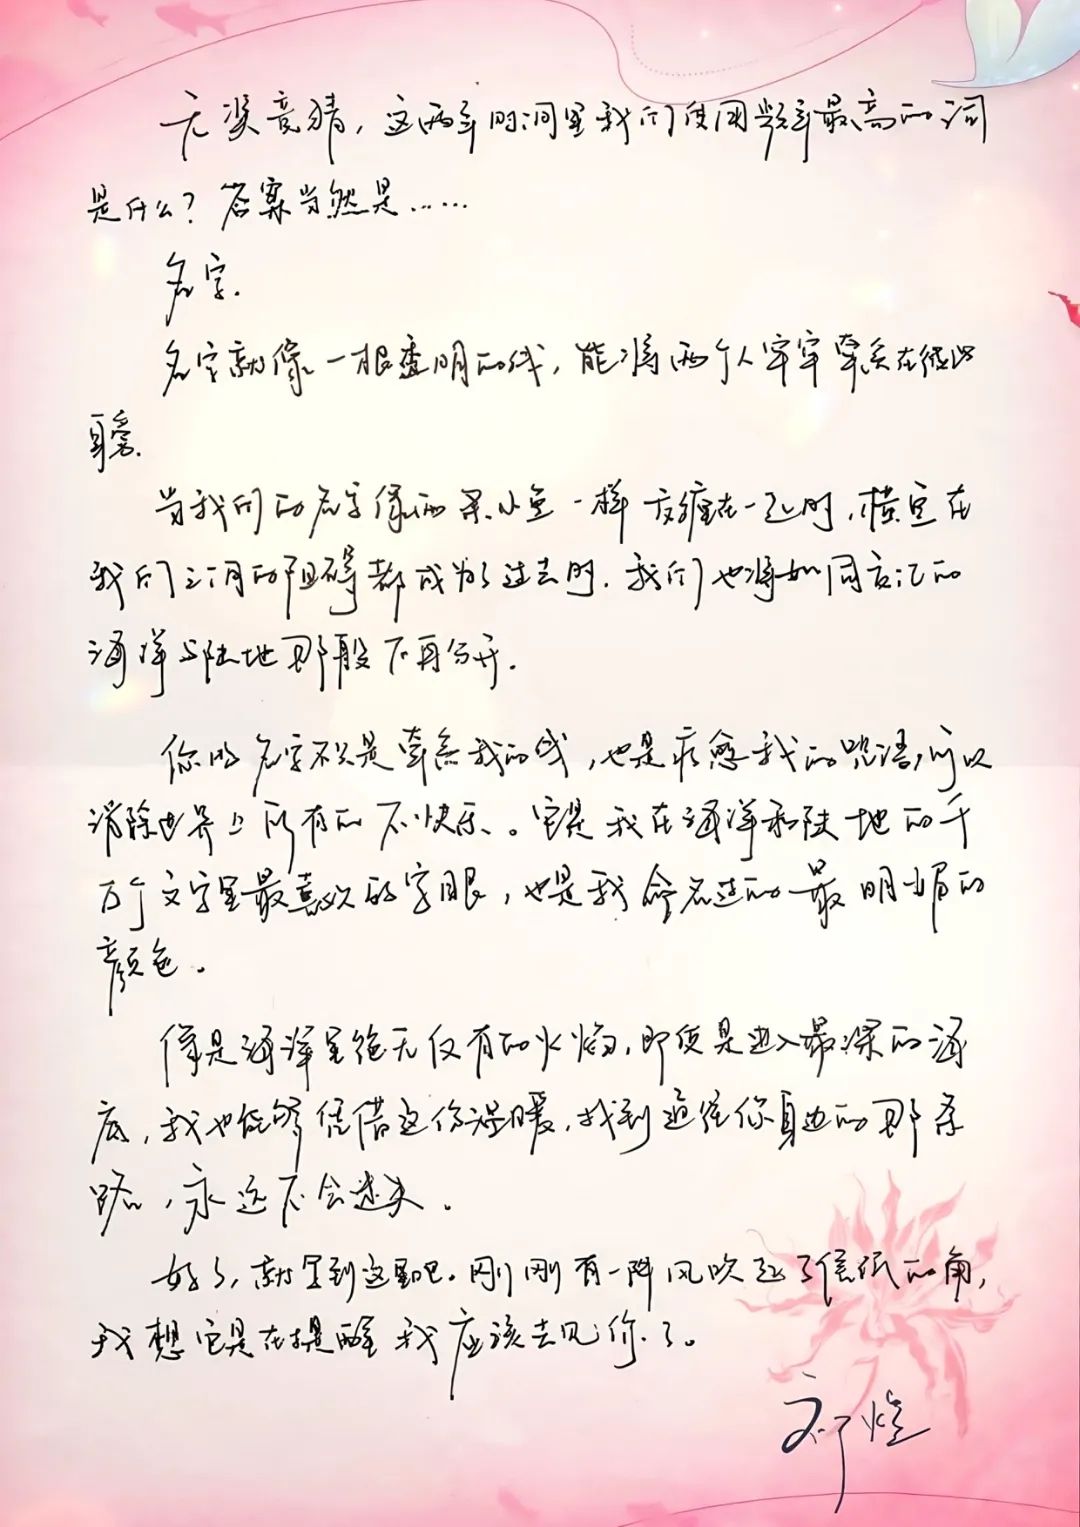 有奖竞猜，这两年时间里我们使用频率最高的词
是什么？答案当然是……
名字.
名字就像一根透明的线，能将两个人牢牢牵系在彼此
身旁.
当我们的名字像两条小鱼一样交缠在一起时，横亘在
我们之间的阻碍都成为了过去时.我们也将如同交汇的
海洋与陆地那般不再分开.
你的名字不只是牵系我的线，也是疗愈我的咒语，可以
消除世界上所有的不快乐。它是我在海洋和陆地的千
万个文字里最喜欢的字眼，也是我命名过的最明媚的
颜色。
像是海洋里绝无仅有的火焰，即使是进入最深的海
底，我也能够凭借这份温暖，找到通往你身边的那条
路，永远不会迷失。
好了，就写到这里吧。刚刚有一阵风吹起了信纸的角，
我想它是在提醒我应该去见你了。
祁煜